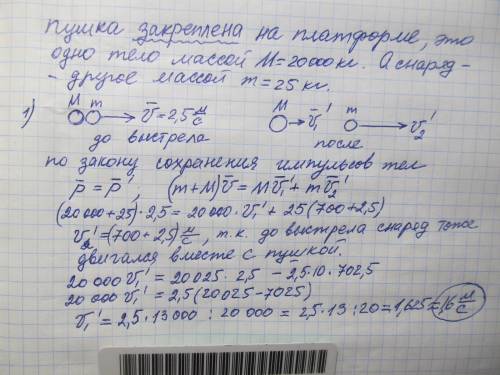 пушка закреплена на платформе, это
одно тело массой M=20000кг. А снаряд-
- другое массой m=25кг.
1) M m v̄=2,5 м/с M v̄₁' m v₂'
до выстрела после
по закону сохранения импульсов тел
p̄ = p̄', (m+M)v̄ = Mv̄₁' + mv̄₂'
(20000+25)·2,5 = 20000·v₁' + 25(700+2,5)
v₂'=(700+2,5) м/с, т.к. до выстрела снаряд тоже
двигался вместе с пушкой.
20000v₁' = 20025·2,5 - 2,5·10·702,5
20000v₁' = 2,5(20025-7025)
v₁' = 2,5·13000 : 20000 = 2,5·13:20=1,625≈1,6 м/с